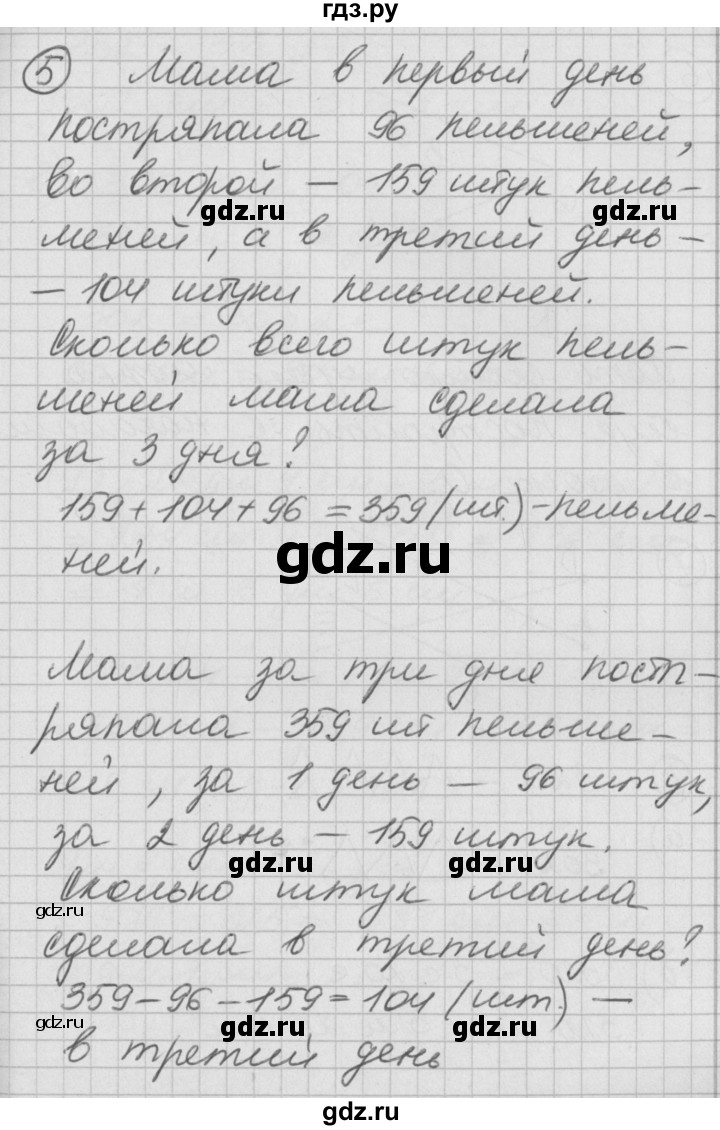 гдз.ру
5 Мама в первый день
постряпала 96 пельменей,
во второй — 159 штук пель-
gdz.ru
gdz.ru
меней, а в третий день -
— 104 штуки пельменей.
Сколько всего штук пель-
меней мама сделала
за 3 дня?
159 + 104 + 96 = 359 (шт.) - пельме-
ней.
gdz.ru
Мама за три дня пост-
ряпала 359 шт пельме-
ней, за 1 день — 96 штук,
за 2 день — 159 штук.
gdz.ru
gdz.ru
Сколько штук мама
gdz.ru
сделала в третий день?
359 - 96 - 159 = 104 (шт.) —
gdz.ru
gdz.ru
gdz.ru
в третий день
gdz.ru